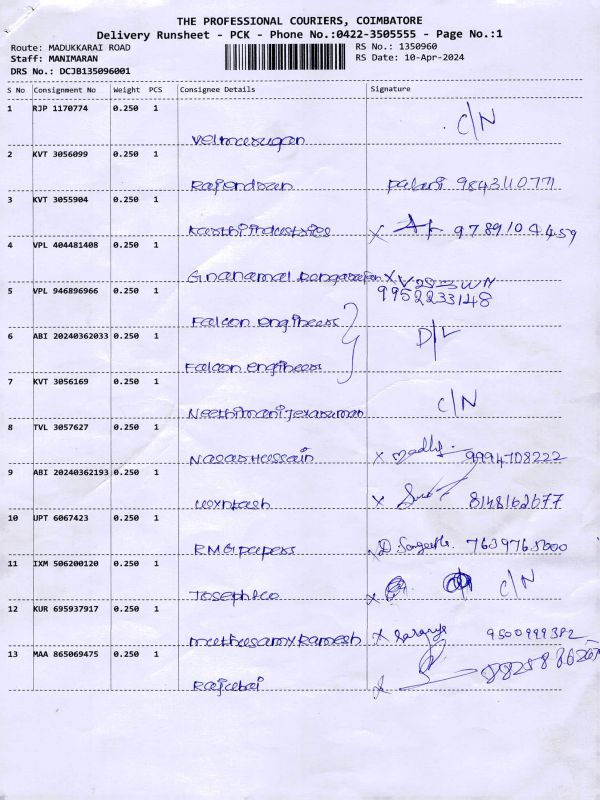 THE PROFESSIONAL COURIERS, COIMBATORE
Delivery Runsheet - PCK - Phone No.:0422-3505555 - Page No.:1
Route: MADUKKARAI ROAD RS No.: 1350960
Staff: MANIMARAN RS Date: 10-Apr-2024
DRS No.: DCJB135096001
S No Consignment No Weight PCS Consignee Details Signature
1 RJP 1170774 0.250 1
Velmurugan C/N
2 KVT 3056099 0.250 1
Rajendran Palani 9843110771
3 KVT 3055904 0.250 1
Karthi industries X 9789104459
4 VPL 404481408 0.250 1
Gnanamal Rangarajan X
9952233148
5 VPL 946896966 0.250 1
Falcon engineers
6 ABI 20240362033 0.250 1 D/L
Falcon engineers
7 KVT 3056169 0.250 1 C/N
Neethimani Jeyakumar
8 TVL 3057627 0.250 1
Nagas Hussain X Madhy 9994708222
9 ABI 20240362193 0.250 1
X 8148162677
10 UPT 6067423 0.250 1
RMG papers D. Sangeetha 7639765000
11 IXM 506200120 0.250 1
Joseph &co X C/N
12 KUR 695937917 0.250 1
Muthusamy Ramesh X 9500999382
13 MAA 865069475 0.250 1
X